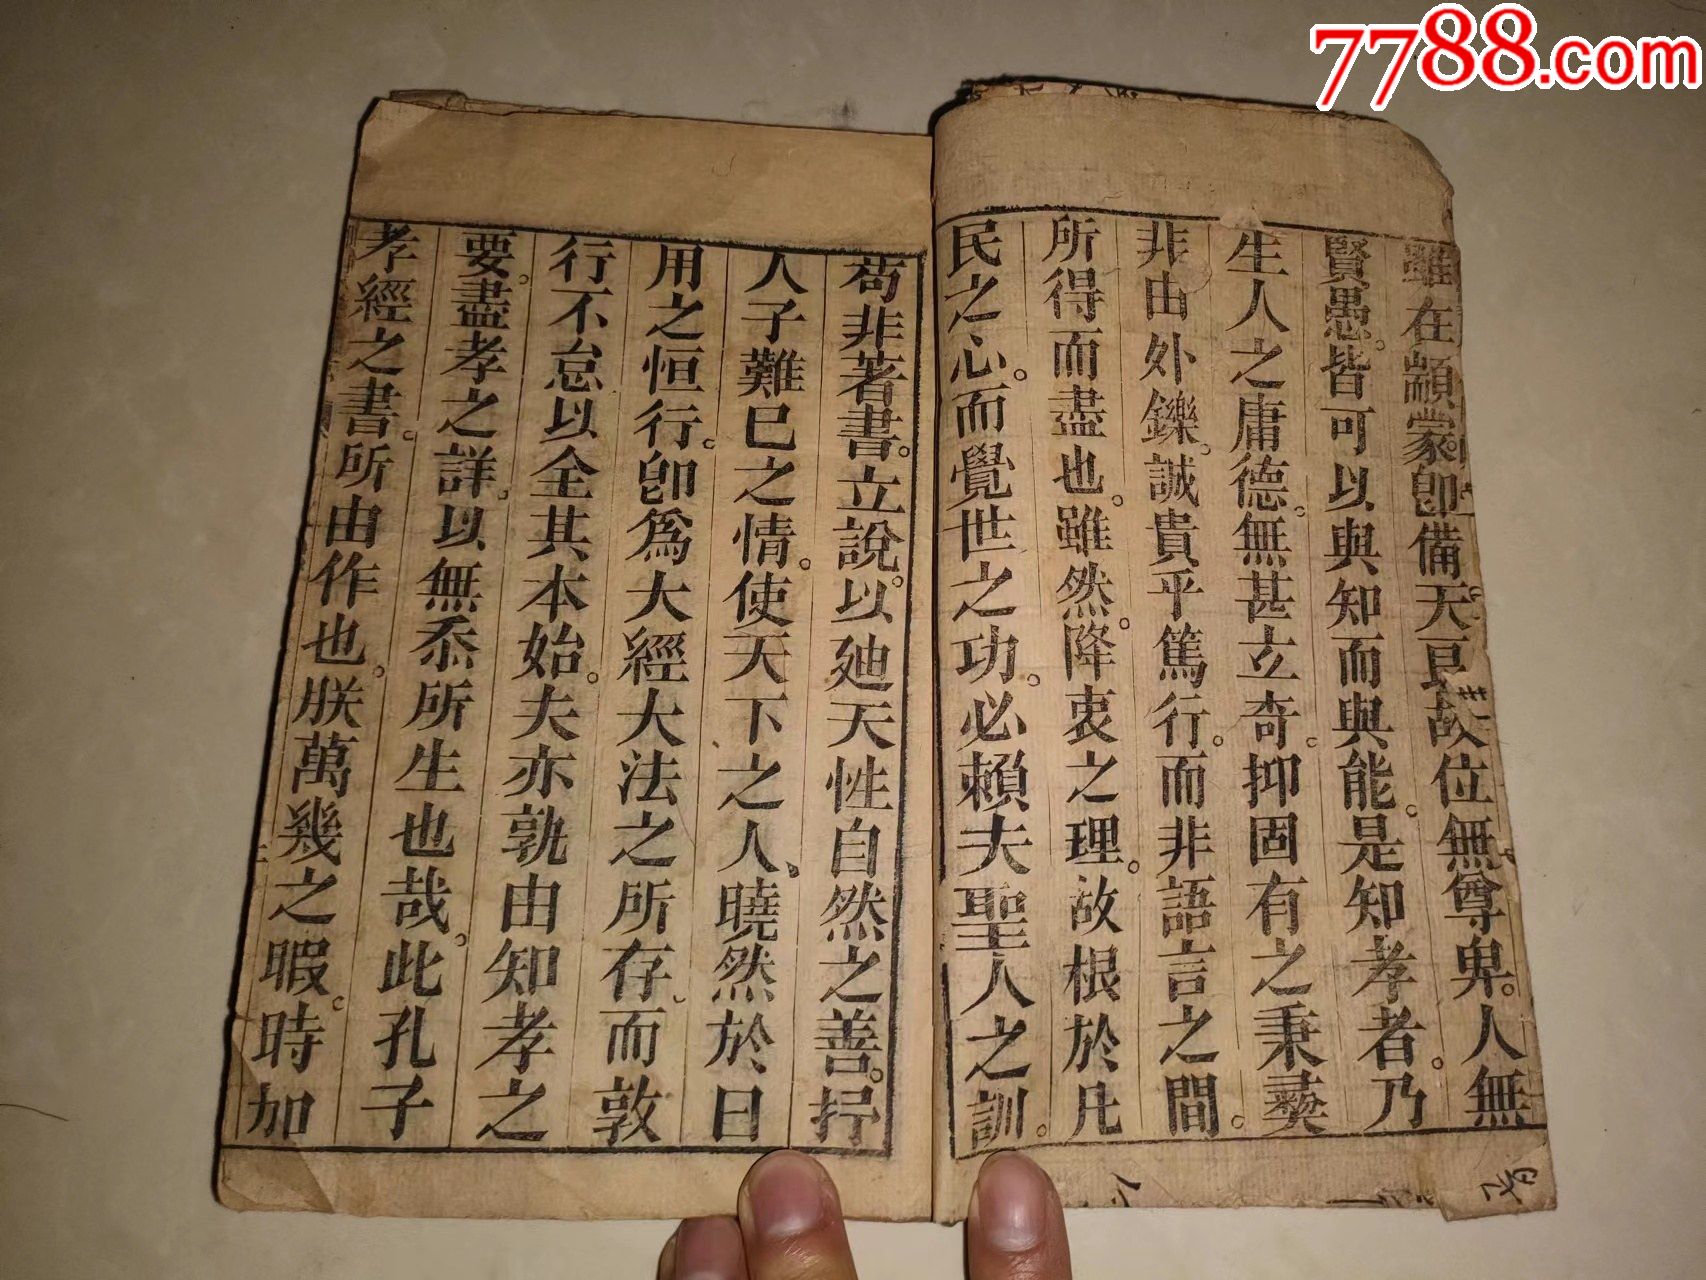 7788.com
雖在顓蒙卽備天良故位無尊卑。人無
賢愚。皆可以與知而與能。是知孝者。乃
生人之庸德。無甚立奇。抑固有之秉彞
非由外鑠。誠貴乎篤行。而非語言之間。
所得而盡也。雖然。降衷之理。故根於凡
民之心。而覺世之功。必賴夫聖人之訓。
苟非著書。立說。以廸天性自然之善。抒
人子難已之情。使天下之人、曉然於日
用之恒行。卽爲大經大法之所存。而敦
行不怠以全其本始。夫亦孰由知孝之
要。盡孝之詳。以無忝所生也哉。此孔子
孝經之書。所由作也。朕萬幾之暇。時加